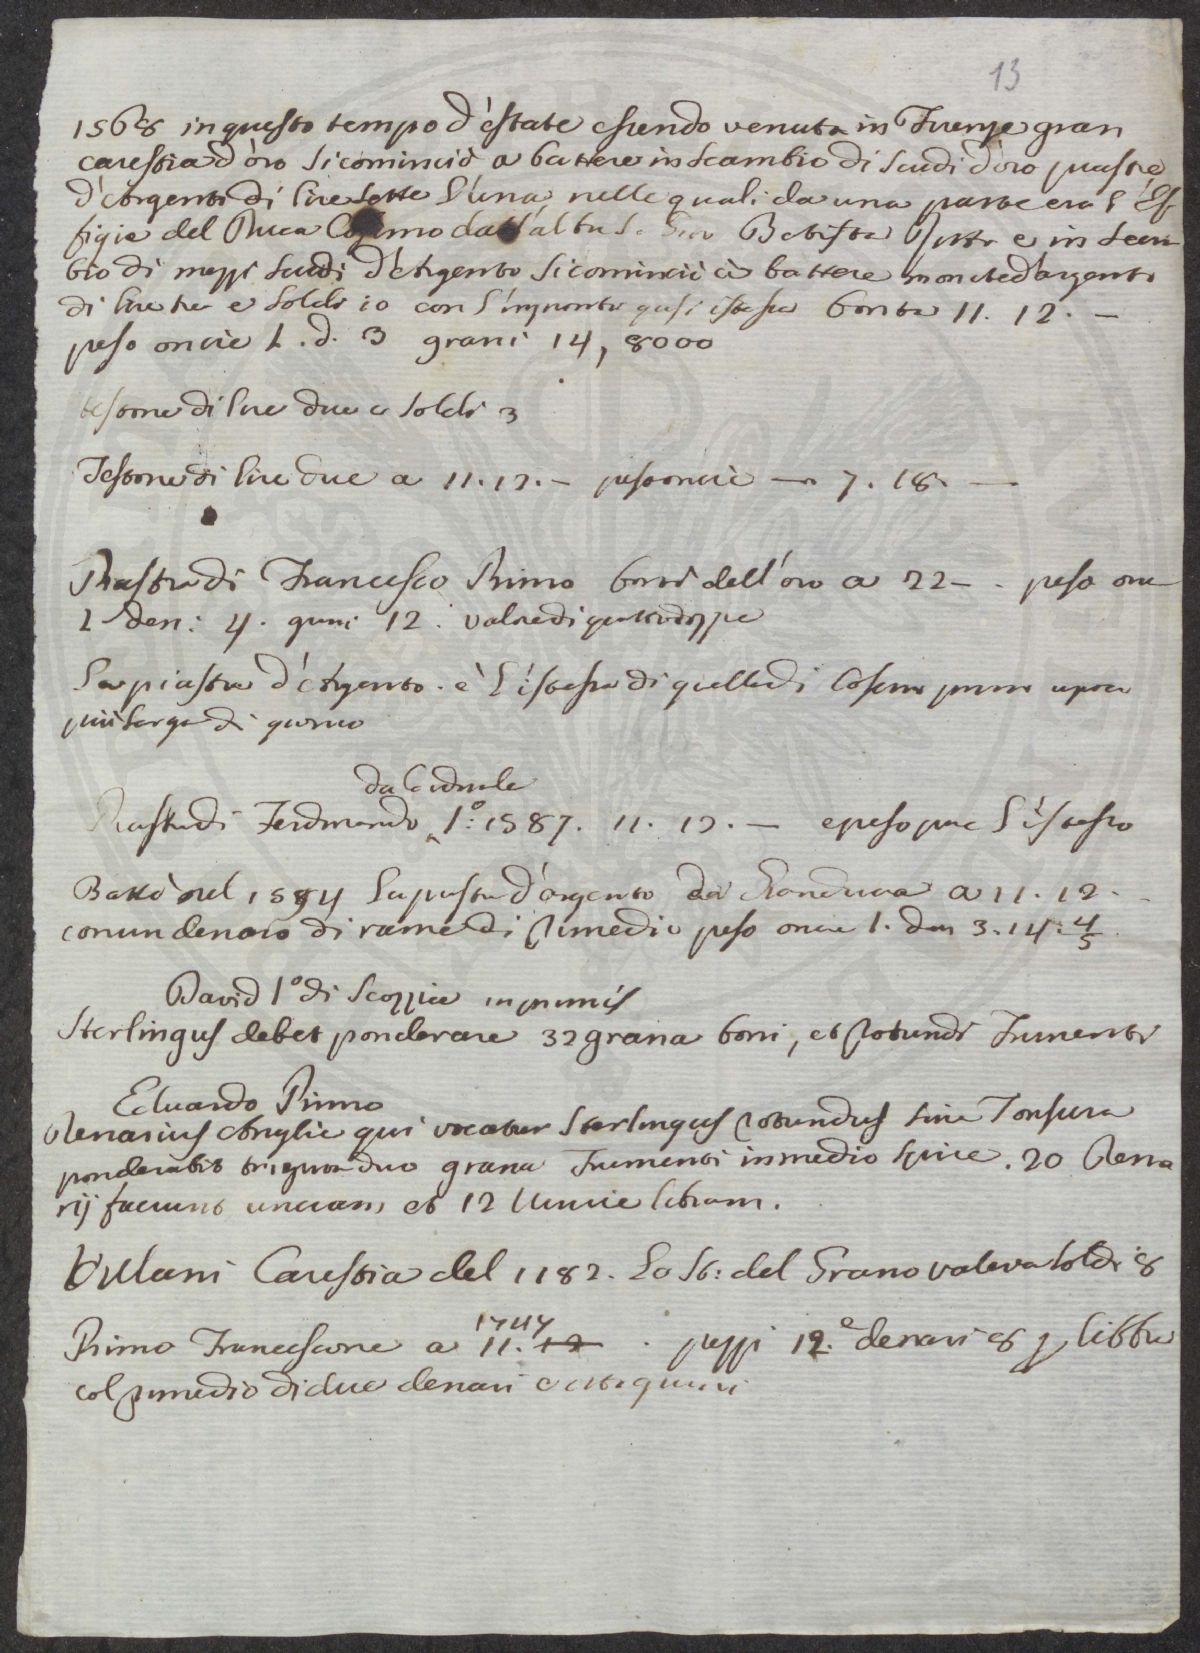 13
1568 in questo tempo d'estate essendo venuta in Firenze gran
carestia d'oro si cominciò a battere in scambio di scudi d'oro piastre
d'Argento di lire sette l'una nelle quali da una parte era l'Ef
figie del Duca Cosimo dall'altra S. Gio Batista e in scam
bio di mezzi scudi d'Argento si cominciò a battere monete d'argento
di lire tre e soldi 10 con l'impronta quasi istessa bontà 11. 12. —
peso oncie 1. d. 3 grani 14, 8000
testone di lire due e soldi 3
Testone di lire due a 11. 12. — peso oncie — 7. 18. —
Piastra di Francesco Primo bontà dell'oro a 22 — . peso onc
1 den: 4. grani 12. valore di quattro dozpe
La piastra d'Argento. è l'istessa di quella di Cosimo primo
più larga di giro
da Cardinale
Piastra di Ferdinando 1.º 1587. 11. 12. — e peso pure l'istesso
Battè nel 1584 la piastra d'argento da Granduca a 11. 12.
con un denaro di rame di rimedio peso oncie 1. den 3. 14. 4/5
David 1º di Scozzia in primis
Sterlingus debet ponderare 32 grana boni, et rotundi Frumenti
Eduardo Primo
Denarius Anglie qui vocatur Sterlingus rotundus sine Tonsura
ponderabit triginta duo grana Frumenti in medio spice. 20 Dena
rij faciunt unciam, et 12 Uncie libram.
Villani Carestia del 1182. Lo St: del Grano valeva soldi 8
1747
Primo Francescone a 11. 12 . pezzi 12. e denari 8 p libbra
col rimedio di due denari e otto grani